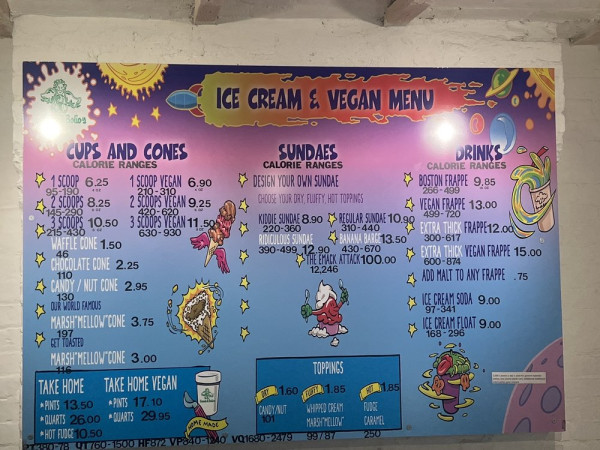 ICE CREAM & VEGAN MENU
CUPS AND CONES
CALORIE RANGES
1 SCOOP 6.25
95-190
1 SCOOP VEGAN 6.90
210-310
2 SCOOPS 8.25
145-290
2 SCOOPS VEGAN 9.25
420-620
3 SCOOPS 10.50
215-430
3 SCOOPS VEGAN 11.50
630-930
WAFFLE CONE 1.50
46
CHOCOLATE CONE 2.25
110
CANDY / NUT CONE 2.95
130
OUR WORLD FAMOUS
MARSH"MELLOW"CONE 3.75
197
GET TOASTED
MARSH"MELLOW"CONE 3.00
116
TAKE HOME
*PINTS 13.50
*QUARTS 26.00
*HOT FUDGE 10.50
TAKE HOME VEGAN
*PINTS 17.10
*QUARTS 29.95
HOME MADE
PT380-78 QT760-1500 HF872 VP840-1240 VQ1680-2479
SUNDAES
CALORIE RANGES
DESIGN YOUR OWN SUNDAE
CHOOSE YOUR DRY, FLUFFY, HOT TOPPINGS
KIDDIE SUNDAE 8.90
220-360
REGULAR SUNDAE 10.90
310-440
RIDICULOUS SUNDAE 12.90
390-499
BANANA BARGE 13.50
430-670
THE EMACK ATTACK 100.00
12,246
TOPPINGS
DRY 1.60
CANDY/NUT
101
FLUFFY 1.85
WHIPPED CREAM
MARSH"MELLOW"
99/87
HOT 1.85
FUDGE
CARAMEL
250
DRINKS
CALORIE RANGES
BOSTON FRAPPE 9.85
266-499
VEGAN FRAPPE 13.00
499-720
EXTRA THICK FRAPPE 12.00
300-617
EXTRA THICK VEGAN FRAPPE 15.00
600-874
ADD MALT TO ANY FRAPPE .75
ICE CREAM SODA 9.00
97-341
ICE CREAM FLOAT 9.00
168-296